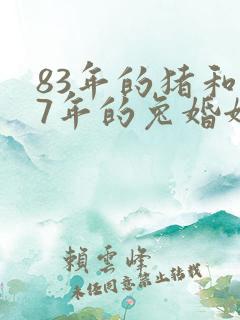 83年的猪和
7年的兔婚
賴雲峰
未经同意禁止转载